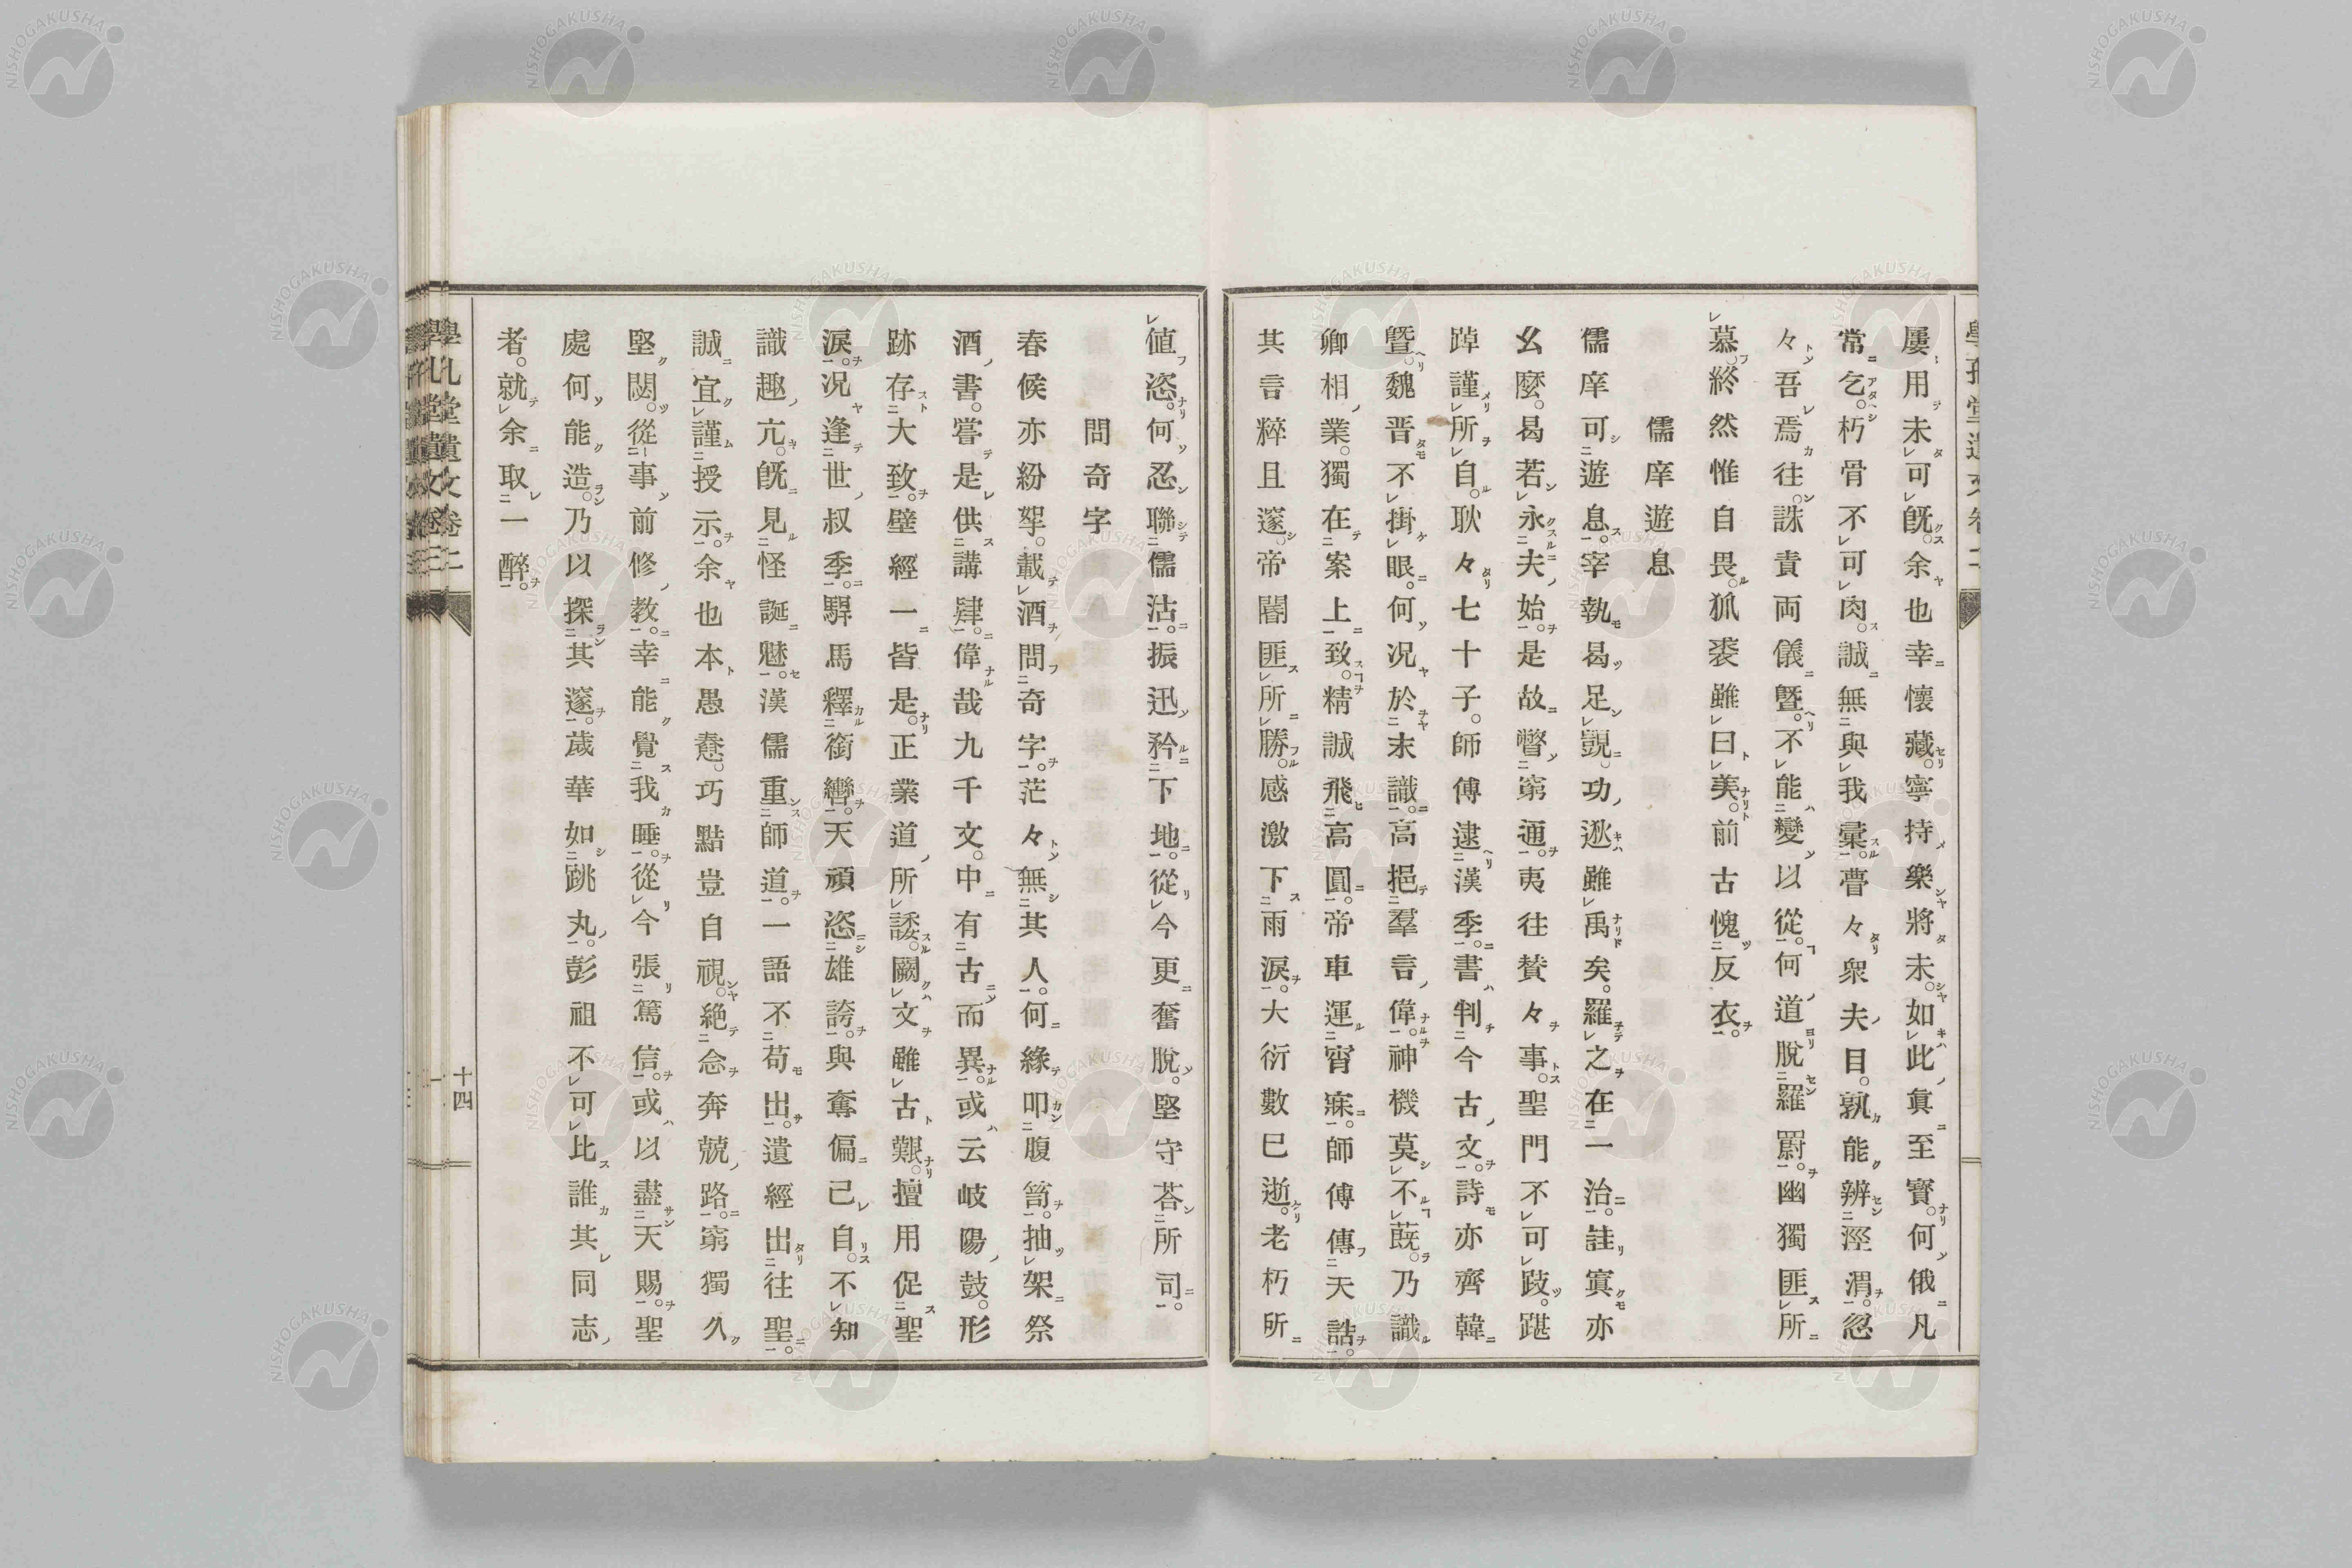 屢用未可既。余也幸懷藏。寧持樂將未。如此眞至寳。何俄凡
常乞。朽骨不可肉。誠無與我彙。瞢々衆夫目。孰能辨涇渭。忽
々吾焉往。誅責両儀曁。不能變以從。何道脫羅罻。幽獨匪所
慕。終然惟自畏。狐裘雖曰美。前古愧反衣。
儒庠遊息
儒庠可遊息。宰執曷足覬。功逖雖禹矣。羅之在一治。詿寘亦
幺麼。曷若永夫始。是故瞥窮通。夷往賛々事。聖門不可跂。踸
踔謹所自。耿々七十子。師傅逮漢季。書判今古文。詩亦齊韓
曁。魏晋不掛眼。何况於末識。高挹羣言偉。神機莫不蔇。乃識
卿相業。獨在案上致。精誠飛高圓。帝車運宵寐。師傅傳天誥。
其言粹且邃。帝闇匪所勝。感激下雨淚。大衍數已逝。老朽所
値恣。何忍聯儒沽。振迅矜下地。從今更奮脫。堅守荅所司。
問奇字
春候亦紛挐。載酒問奇字。茫々無其人。何緣叩腹笥。抽架祭
酒書。嘗是供講肄。偉哉九千文。中有古而異。或云岐陽鼓。形
跡存大致。壁經一皆是。正業道所諉。闕文雖古艱。擅用促聖
淚。况逢世叔季。駻馬釋銜轡。天頑恣雄誇。與奪偏己自。不知
識趣亢。旣見怪誕魅。漢儒重師道。一語不苟出。遺經出往聖。
誠宜謹授示。余也本愚惷。巧點豈自視。絶念奔競路。窮獨久
堅閟。從事前修教。幸能覺我睡。從今張篤信。或以盡天賜。聖
處何能造。乃以探其邃。歲華如跳丸。彭祖不可比。誰其同志
者。就余取一醉。
十四